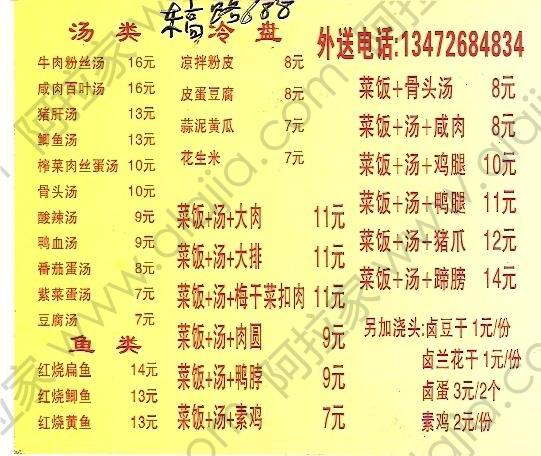 汤 类
牛肉粉丝汤 16元
咸肉百叶汤 16元
猪肝汤 13元
鲫鱼汤 13元
榨菜肉丝蛋汤 10元
骨头汤 10元
酸辣汤 9元
鸭血汤 9元
番茄蛋汤 8元
紫菜蛋汤 7元
豆腐汤 7元
鱼 类
红烧扁鱼 14元
红烧鲫鱼 13元
红烧黄鱼 13元
688
冷 盘
凉拌粉皮 8元
皮蛋豆腐 8元
蒜泥黄瓜 7元
花生米 7元
菜饭+汤+大肉 11元
菜饭+汤+大排 11元
菜饭+汤+梅干菜扣肉 11元
菜饭+汤+肉圆 9元
菜饭+汤+鸭脖 9元
菜饭+汤+素鸡 7元
外送电话:13472684834
菜饭+骨头汤 8元
菜饭+汤+咸肉 8元
菜饭+汤+鸡腿 10元
菜饭+汤+鸭腿 11元
菜饭+汤+猪爪 12元
菜饭+汤+蹄膀 14元
另加浇头:卤豆干 1元/份
卤兰花干 1元/份
卤蛋 3元/2个
素鸡 2元/份
阿拉家 www.alajia.com